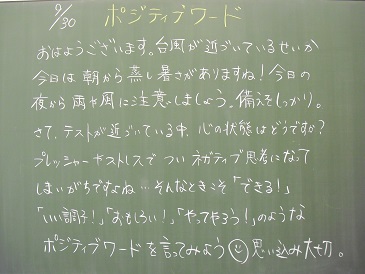 9/30 ポジティブワード
おはようございます。台風が近づいているせいか
今日は朝から蒸し暑さがありますね!今日の
夜から雨や風に注意しましょう。備えをしっかり。
さて、テストが近づいている中、心の状態はどうですか?
プレッシャーやストレスでついネガティブ思考になって
しまいがちですよね…そんなときこそ「できる!」
「いい調子!」「おもしろい!」「やってやろう!」のような
ポジティブワードを言ってみよう 思い込み大切。